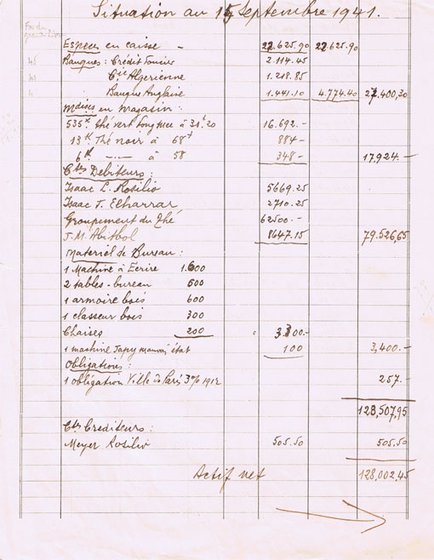 Situation au 15 Septembre 1941.
Espèces en caisse - 22.625.90 22.625.90
Banques: Crédit Foncier 2.114.45
Cie Algérienne 1.218.85
Banque Anglaise 1.441.10 4.774.40 27.400,30
Mdises en Magasin:
535K thé vert Long Mee à 31f20 16.692.-
13K Thé noir à 68f 884-
6K -..- à 58 348- 17.924.-
Ctes Débiteurs:
Isaac L. Rosilio 5669.25
Isaac T. Elharrar 2710.25
Groupement du Thé 62500.-
J. M. Abitbol 8647.15 79.526,65
Matériel de Bureau:
1 Machine à Ecrire 1.600
2 tables-bureau 600
1 armoire bois 600
1 classeur bois 300
Chaises 200 3.300.-
1 machine Japy mauvais état 100 3,400.-
Obligations:
1 obligation Ville de Paris 3% 1912 257.-
128,507,95
Ctes Créditeurs:
Meyer Rosilio 505.50 505,50
Actif net 128,002,45